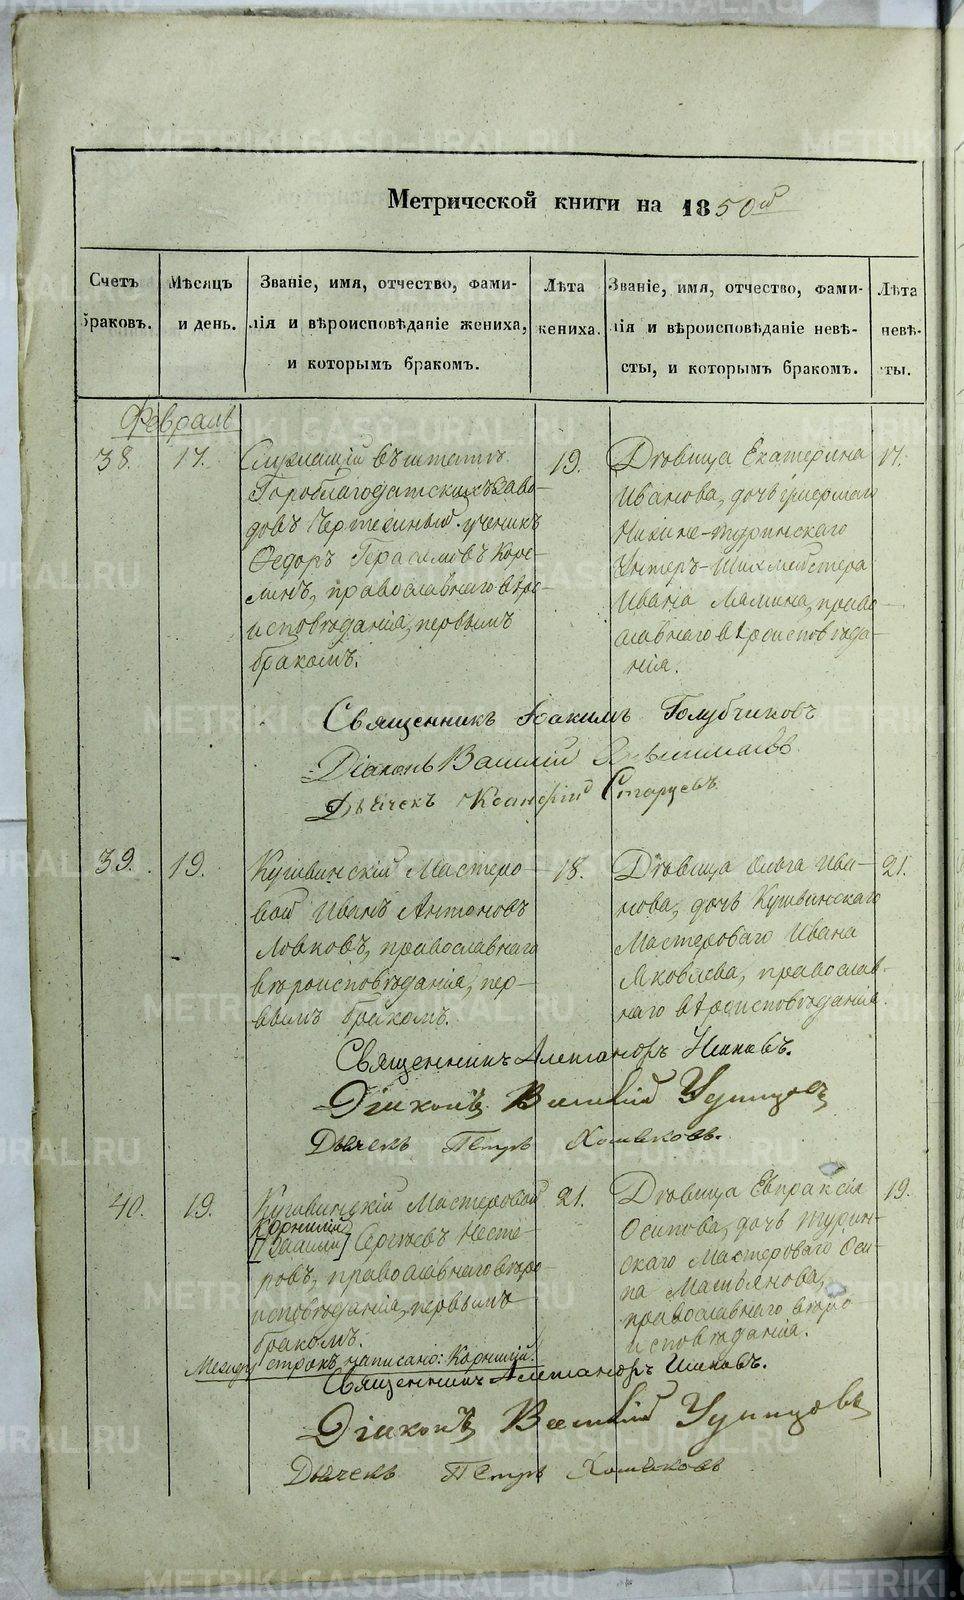 Метрической книги на 1850й
Счетъ браковъ.
Мѣсяцъ и день.
Званіе, имя, отчество, фамилія и вѣроисповѣданіе жениха, и которымъ бракомъ.
Лѣта жениха.
Званіе, имя, отчество, фамилія и вѣроисповѣданіе невѣсты, и которымъ бракомъ.
Лѣта невѣсты.
Февраль
38.
17.
Служащій въ штатѣ
Гороблагодатскихъ Заво-
довъ Чертежный ученикъ
Ѳедоръ Герасимовъ
православнаго вѣро-
исповѣданія, первымъ
бракомъ.
19.
Дѣвица Екатерина
Иванова, дочь умершаго
Нижне-Туринскаго
Унтеръ-Шихмейстера
Ивана Мамина, право-
славнаго вѣроисповѣда-
нія.
17.
Священникъ Іоакимъ Голубчиковъ
Діаконъ Василій
Дьячекъ Старцевъ
39.
19.
Кушвинскій Мастеро-
вой Иванъ Антоновъ
Ловковъ, православнаго
вѣроисповѣданія, пер-
вымъ бракомъ.
18.
Дѣвица Ольга Ива-
нова, дочь Кушвинскаго
Мастероваго Ивана
Яковлева, православ-
наго вѣроисповѣданія.
21.
Священникъ Александръ
Діаконъ Василій Удинцовъ
Дьячекъ Петръ Хомяковъ.
40.
19.
Кушвинскій Мастеровой
Корнилій
Сергѣевъ Несте-
ровъ, православнаго вѣро-
исповѣданія, первымъ
бракомъ.
21.
Дѣвица Евпраксія
Осипова, дочь Турин-
скаго Мастероваго Оси-
па
православнаго вѣро
исповѣданія.
19.
Между строкъ написано: Корнилій.
Священникъ Александръ
Діаконъ Василій Удинцовъ
Дьячекъ Петръ Хомяковъ
METRIKI.GASO-URAL.RU